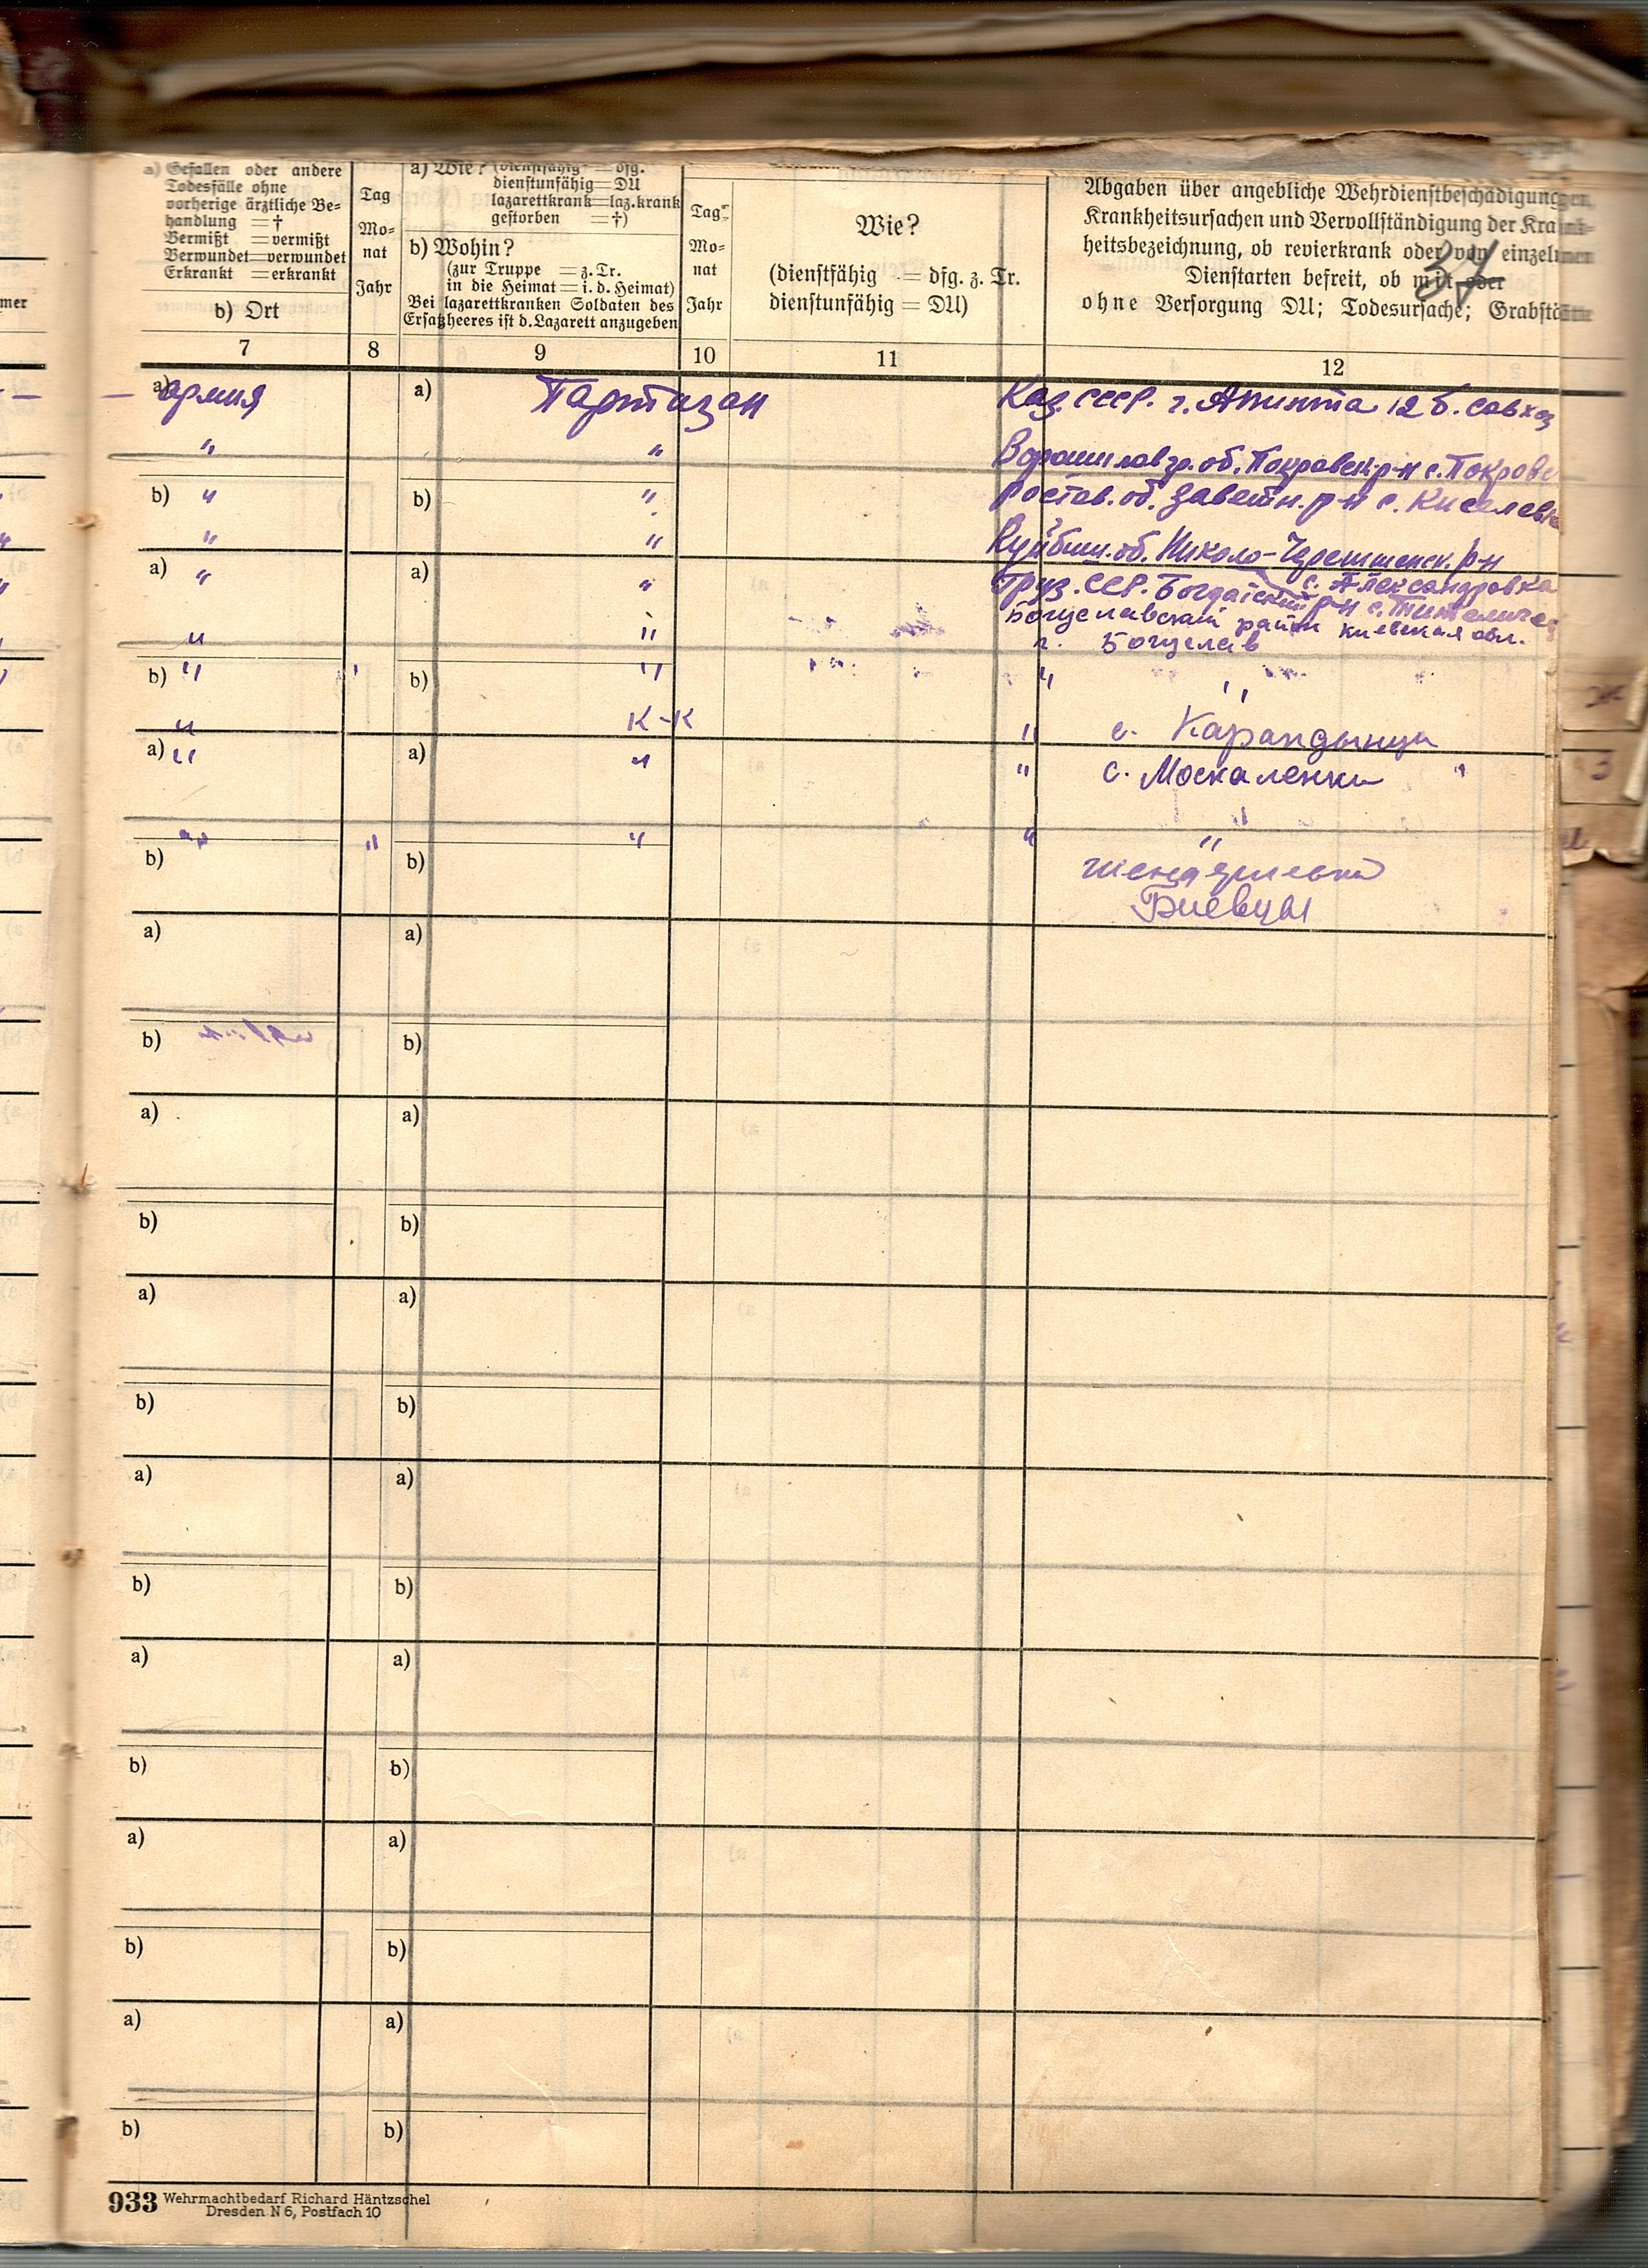 a) Gefallen oder andere
Todesfälle ohne
vorherige ärztliche Be-
handlung = †
Vermißt = vermißt
Verwundet = verwundet
Erkrankt = erkrankt
b) Ort
Tag
Mo-
nat
Jahr
a) Wie? (dienstfähig = dfg.
dienstunfähig = DU
lazarettkrank = laz.krank
gestorben = †)
b) Wohin?
(zur Truppe = z. Tr.
in die Heimat = i. d. Heimat)
Bei lazarettkranken Soldaten des
Ersatzheeres ist d. Lazarett anzugeben
Tag
Mo-
nat
Jahr
Wie?
(dienstfähig = dfg. z. Tr.
dienstunfähig = DU)
Abgaben über angebliche Wehrdienstbeschädigungen,
Krankheitsursachen und Vervollständigung der Krank-
heitsbezeichnung, ob revierkrank oder von einzelnen
Dienstarten befreit, ob mit oder
ohne Versorgung DU; Todesursache; Grabstätte
34
7 8 9 10 11 12
a) армия a) Партизан Каз. ССР. г. Алинта 12 б. совхоз
" " Ворошиловгр. об. Покровск р-н с. Покровс
b) " b) " Ростов. об. Заветн. р-н с. Киселевк
" " Куйбыш. об. Николо-Черемшанск. р-н
с. Александровка
a) " a) " Груз. ССР. Богдайский р-н с.
Богуславский район киевская обл.
" " г. Богуслав
b) " " b) " " "
" К-К " с. Карандынцы
a) " a) " " с. Москаленки "
"
" " " " "
b) b)
Биевцы
a) a)
b) b)
a) a)
b) b)
a) a)
b) b)
a) a)
b) b)
a) a)
b) b)
a) a)
b) b)
a) a)
b) b)
933 Wehrmachtbedarf Richard Häntzschel
Dresden N 6, Postfach 10